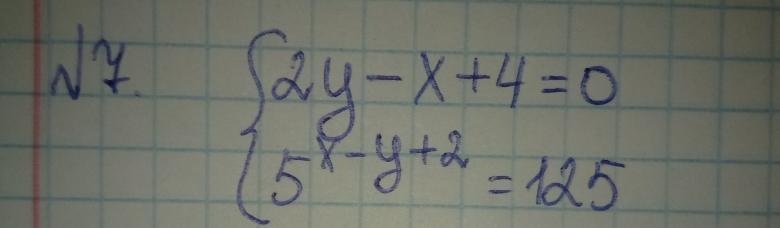 №7. { 2y - x + 4 = 0
5^{x-y+2} = 125